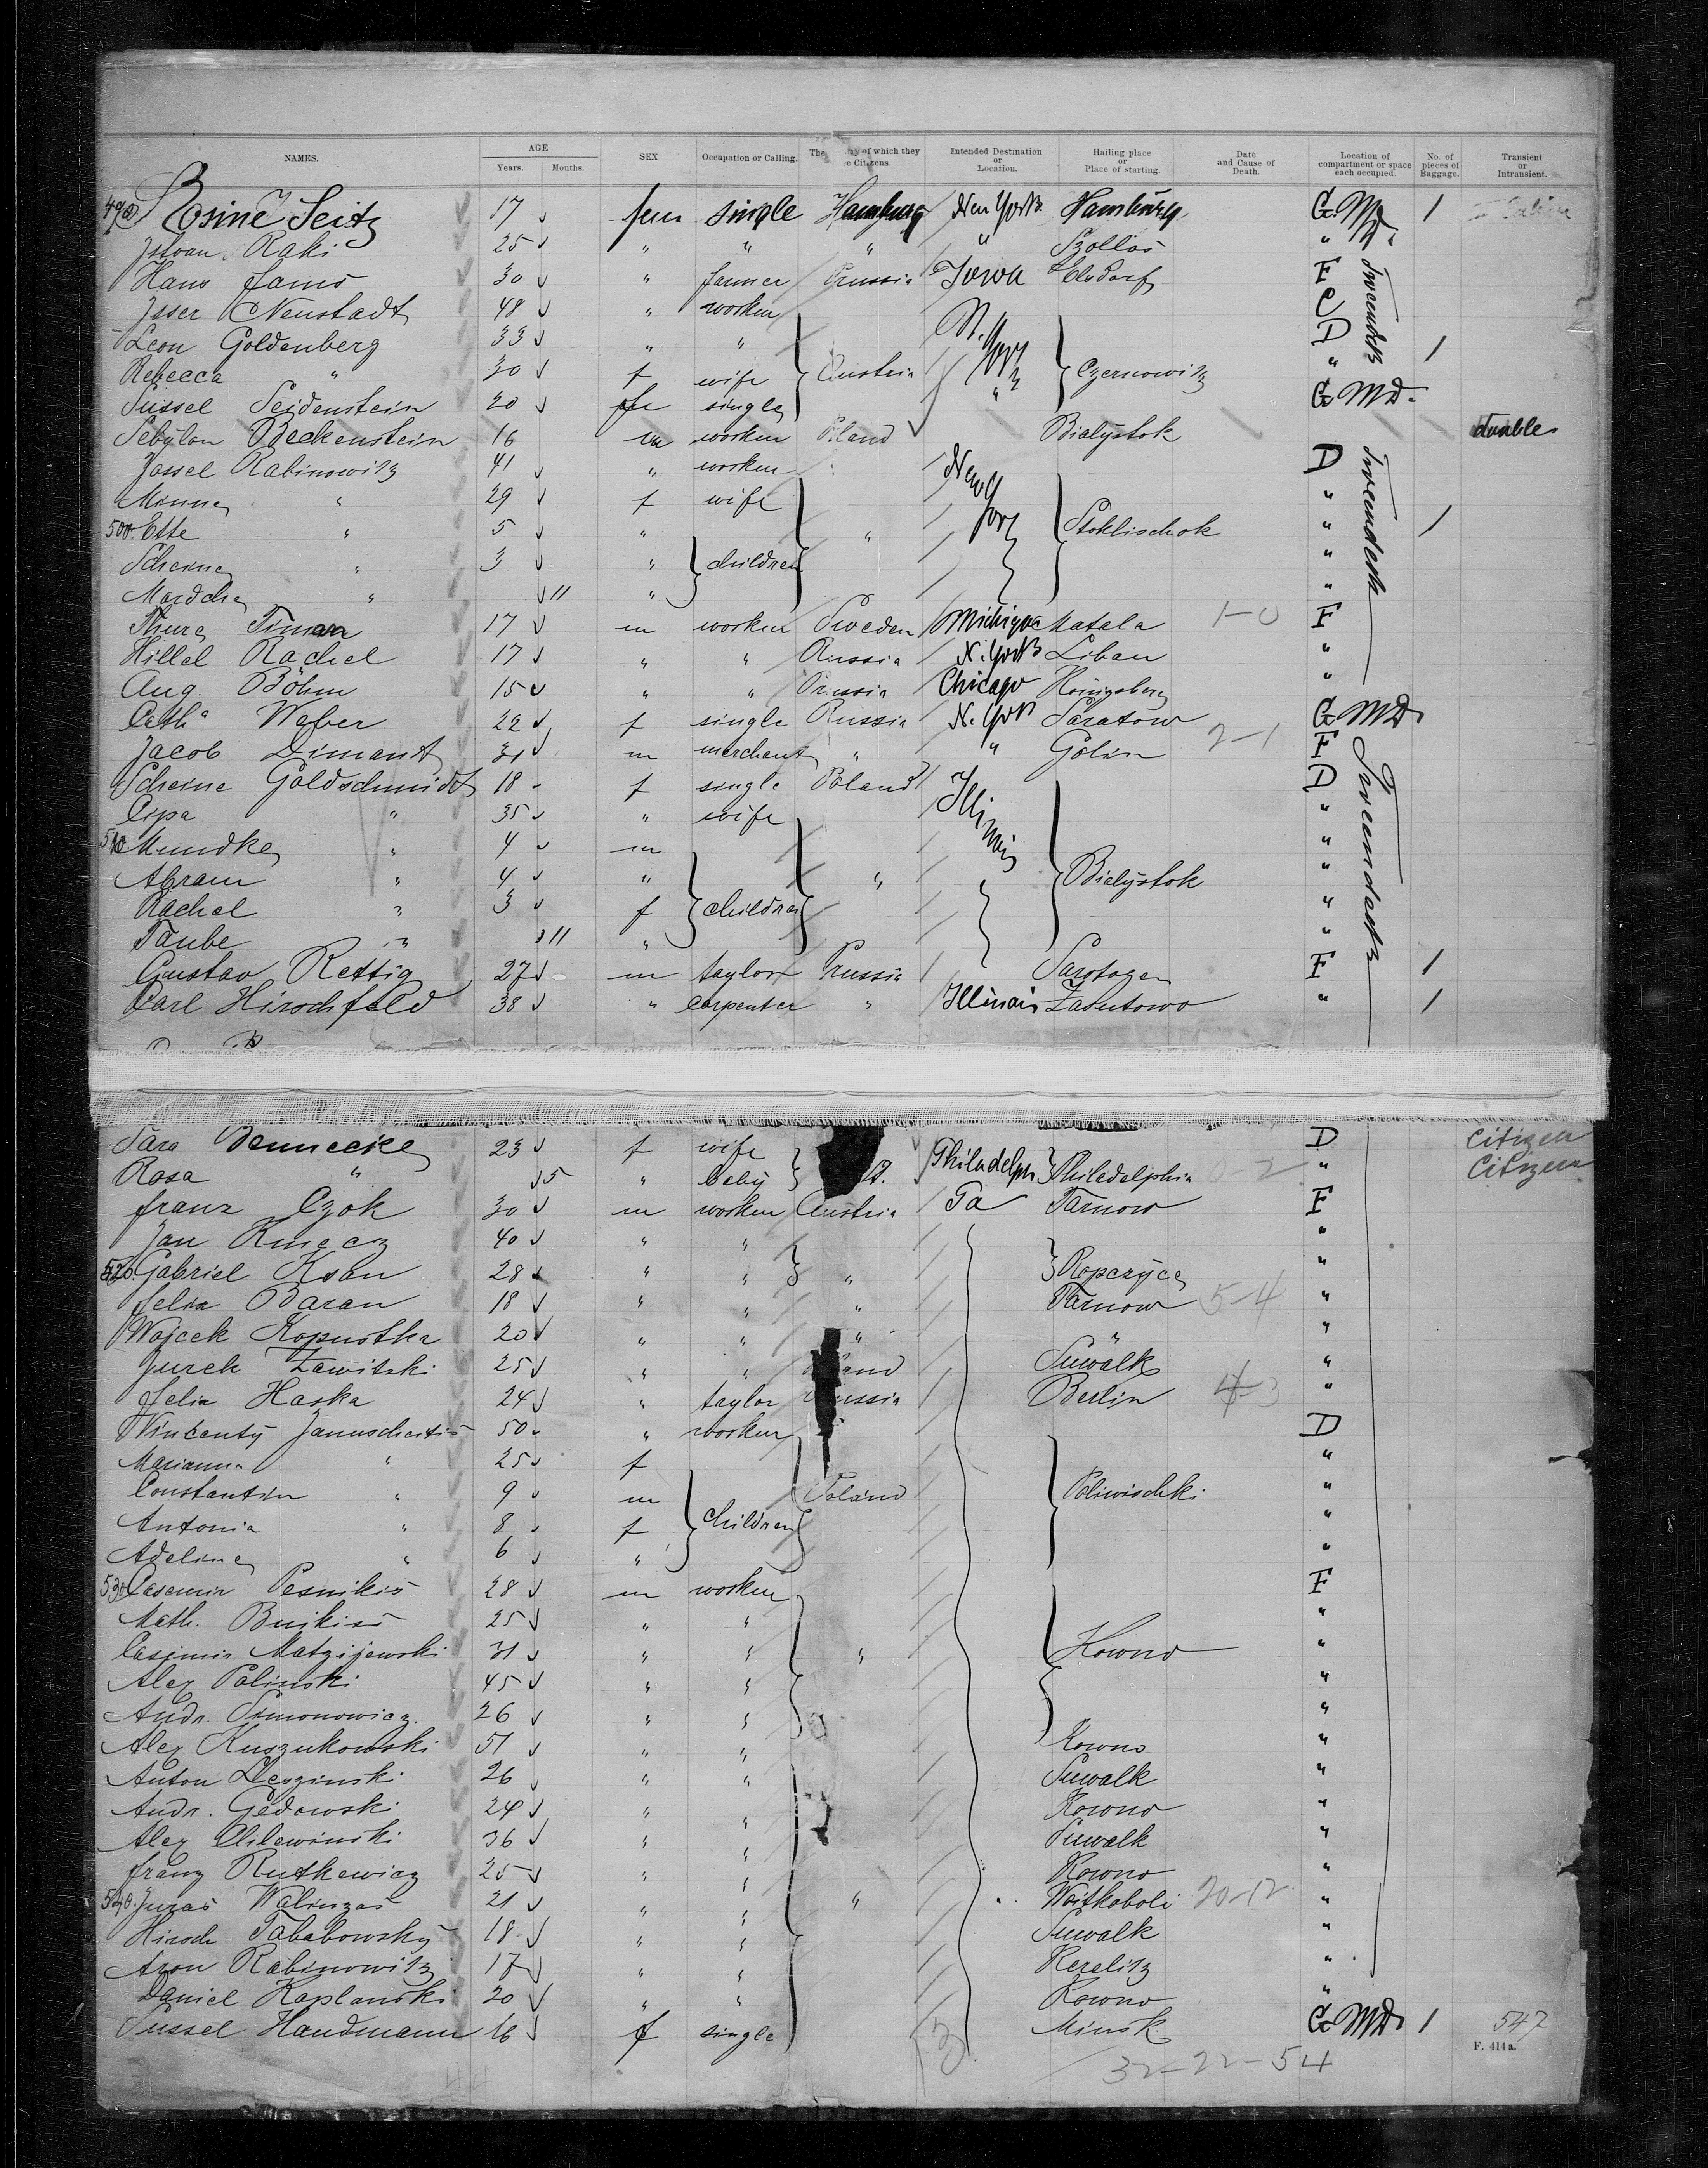 NAMES. AGE Years. Months. SEX Occupation or Calling. The of which they Citizens. Intended Destination or Location. Hailing place or Place of starting. Date and Cause of Death. Location of compartment or space each occupied. No. of pieces of Baggage. Transient or Intransient.
Rosine Seitz 17 fem single Hamburg New York Hamburg G. MD. 1
Istvan Raki 25 " " " " Szollos "
Hans 30 " farmer Prussia Iowa F
Isser Neustadt 48 " worker C
Leon Goldenberg 33 " " N. York D 1
Rebecca " 30 f wife Austria Czernowitz "
Sussel Seidenstein 20 fe single " G MD.
Beckenstein 16 m worker Poland Bialystok double
Jossel Rabinowitz 41 " worker New York D
Minna " 29 f wife "
500. Ette " 5 " " Stoklischok " 1
Scheine " 3 " children "
Mordche " 11 " "
Thure 17 m worker Sweden Michigan Matala 1-0 F
Hillel Rachel 17 " " Russia N. York Libau "
Aug. Böhm 15 " " Prussia Chicago Königsberg "
Cath. Weber 22 f single Russia N. York Saratow G MD.
Jacob Dimant 31 m merchant " " Golin 2-1 F
Scheine Goldschmidt 18 f single Poland Illinois D
Cipa " 35 " wife "
510 Mundke " 4 m "
Abram " 4 " " Bialystok "
Rachel " 3 f children "
Taube " 11 " "
Gustav Rettig 27 m taylor Prussia F 1
Carl Hirschfeld 38 " carpenter " Illinois Zasutowo " 1
Sara Bennecke 23 f wife Philadelph Philadelphia D Citizen
Rosa " 5 " baby 0-2 " Citizen
Franz Czok 30 m worker Austria Pa Tarnow F
Jan Kmecz 40 " " "
520. Gabriel Ksan 28 " " " Ropczyce "
Felix Baran 18 " " " Tarnow 5-4 "
Wojcek Kopustka 20 " " " " "
Jurek Zawitski 25 " " Suwalk "
Felix Haska 24 " taylor Berlin 4-3 "
Vincenty 50 " worker D
Marianna " 25 f "
Constantin " 9 m Poland Poliwischki "
Antonia " 8 f children "
Adeline " 6 " "
530 Casemir Pesnikis 28 m worker F
Math. Buikiss 25 " " "
Casimir Matzijewski 31 " " " Kowno "
Alex Polinski 45 " " "
Andr. Simonowicz 26 " " "
Alex Kuszukowski 51 " " Kowno "
Anton Leszinski 26 " " Suwalk "
Andr. Gedowski 24 " " Kowno "
Alex 36 " " Suwalk "
Franz Rutkewicz 25 " " Kowno "
540. Juras Walinzas 21 " " " Woitkoboli 20-12 "
Hirsch Tababowsky 18 " " Suwalk "
Aron Rabinowitz 17 " " Rerelitz "
Daniel Kaplanski 20 " " Kowno "
Sussel Handmann 16 f single Minsk G MD. 1 547
F. 414a.
32-22-54